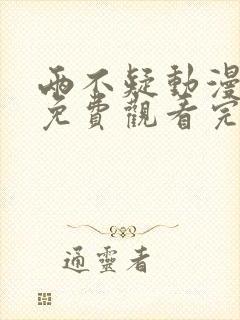 兩不疑動漫
免費觀看完
通靈者